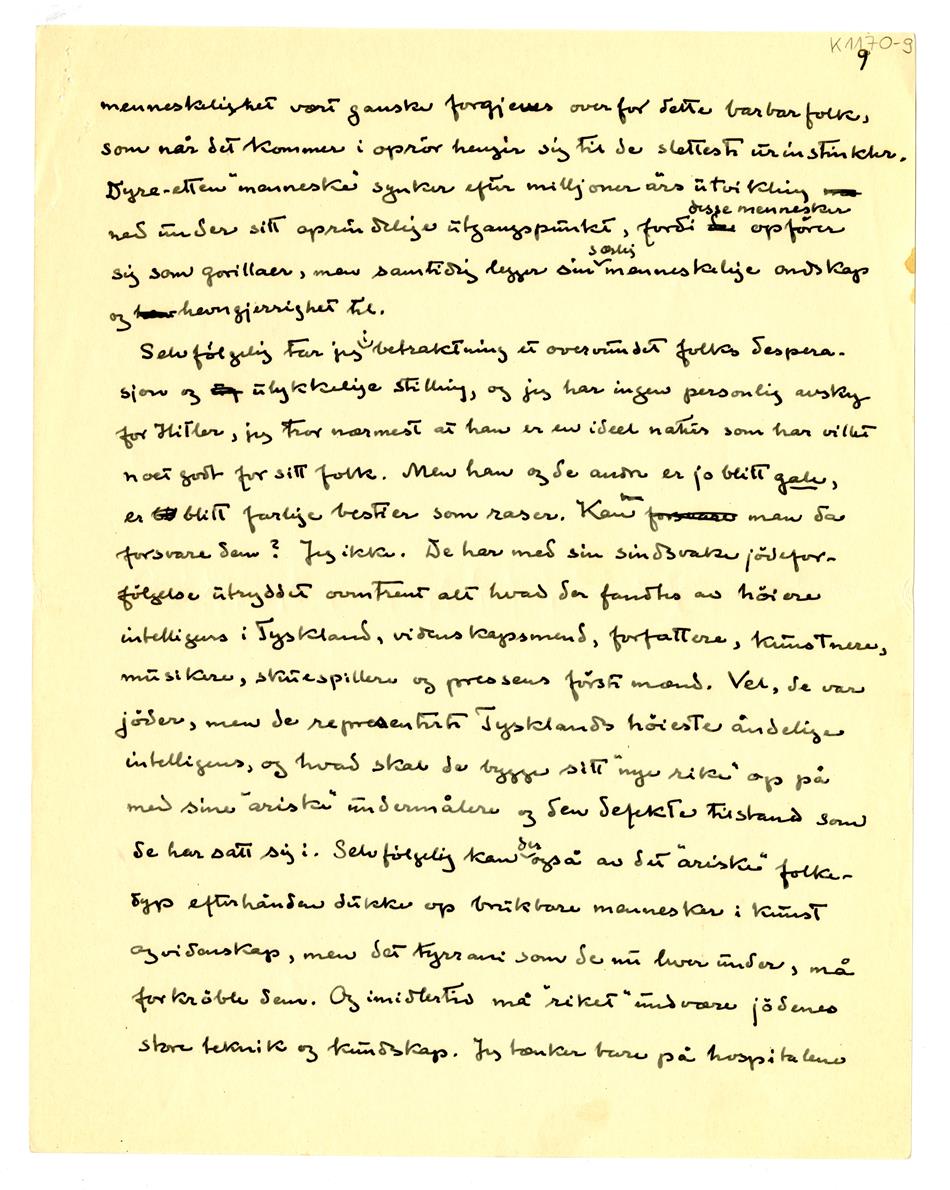 K1170-9
9
menneskelighet vært ganske forgjeves overfor dette barbarfolk,
som når det kommer i oprör hengir sig til de slettesti urinstinkter.
Dyre-etten "menneske" synker efter milljoner års utvikling
disse mennesker
ned under sitt oprindelige utgangspunkt, fordi de opförer
særlig
sig som gorillaer, men samtidig legger sin menneskelige ondskap
og hevngjerrighet til.
Selvfölgelig tar jeg i betraktning et overvundet folks despera-
sjon og ulykkelige stilling, og jeg har ingen personlig avsky
for Hitler, jeg tror nærmest at han er en ideel natur som har villet
noet godt for sitt folk. Men han og de andre er jo blitt gale,
er blitt farlige bestier som raser. Kan forsvare man da
forsvare dem? Jeg ikke. De har med sin sindsvake jödefor-
fölgelse utryddet omtrent alt hvad der fandtes av höiere
intelligens i Tyskland, videnskapsmend, forfattere, kunstnere,
musikere, skuespillere og pressens försti mænd. Vel, de var
jöder, men de representerti Tysklands höieste åndelige
intelligens, og hvad skal de bygge sitt "nye rike" op på
med sine "ariske" undermålere og den defekte tilstand som
de har satt sig i. Selvfölgelig kan der også av det "ariske" folke-
dyp efterhånden dukke op brukbare mennesker i kunst
og videnskap, men det tyrrani som de nu lever under, må
forkröble dem. Og imidlertid må "riket" undvære jödenes
store teknik og kundskap. Jeg tænker bare på hospitalene